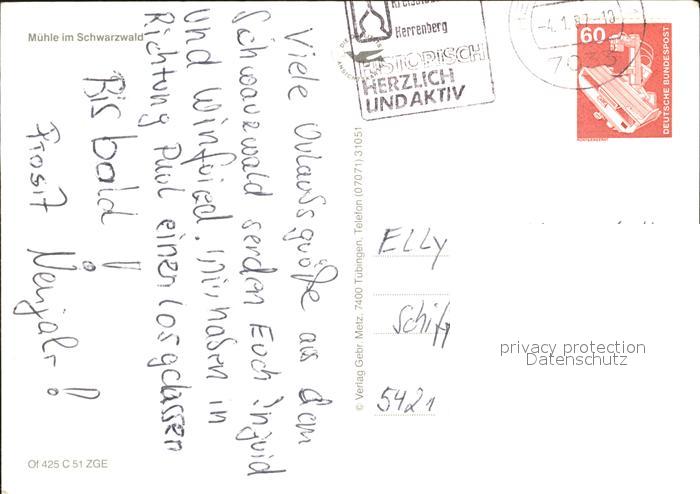 Mühle im Schwarzwald
Viele Urlaubsgrüße aus dem
Schwarzwald senden Euch Ingrid
und Winfried. Wir haben in
Richtung Paul einen losgelassen
Bis bald!
Prosit Neujahr!
Of 425 C 51 ZGE
© Verlag Gebr. Metz, 7400 Tübingen, Telefon (07071) 31051
Herrenberg
HISTORISCH
HERZLICH
UND AKTIV
-4.1.87-10
7033
60
DEUTSCHE BUNDESPOST
RÖNTGENGERÄT
Elly
Schiff
5421
privacy protection
Datenschutz